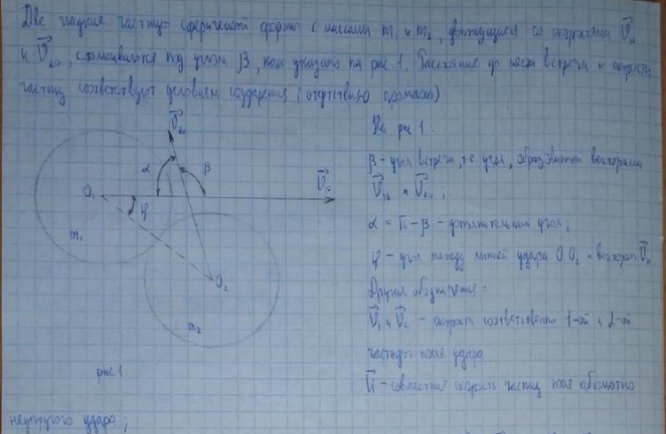 Две гладкие частицы сферической формы с массами m₁ и m₂, движущиеся со скоростями V⃗₁₀
и V⃗₂₀, сталкиваются под углом β, как указано на рис 1. Расстояние до места встречи и скорости
частиц соответствуют условиям соударения (отсутствию промаха)
V⃗₂₀
На рис 1:
α β
β - угол встречи, т.е. угол, образованный векторами
V⃗₁₀
O₁
V⃗₁₀ и V⃗₂₀;
φ
α = π - β - дополнительный угол;
m₁
φ - угол между линией удара O₁O₂ и вектором V⃗₁₀
O₂
Другие обозначения -
V⃗₁ и V⃗₂ - скорости соответственно 1-ой и 2-ой
m₂
частицы после удара
рис 1
U⃗ - совместная скорость частиц после абсолютно
неупругого удара;